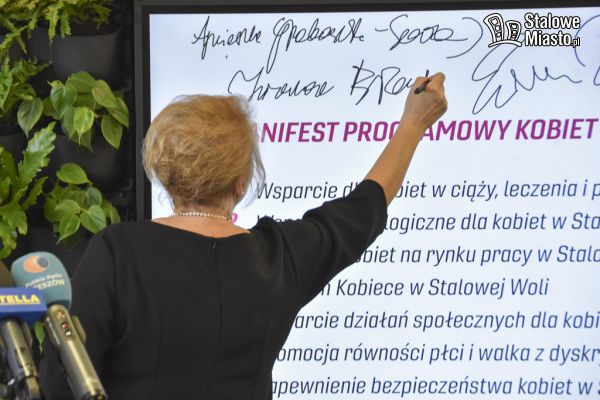 Stalowe
Miasto.pl
NIFEST PROGRAMOWY KOBIET
Wsparcie dl biet w ciąży, leczenia i p
logiczne dla kobiet w Sta
obiet na rynku pracy w Stalo
Kobiece w Stalowej Woli
arcie działań społecznych dla kobi
omocja równości płci i walka z dyskry
apewnienie bezpieczeństwa kobiet w S
Polskie Radio
RZESZÓW
TELLA